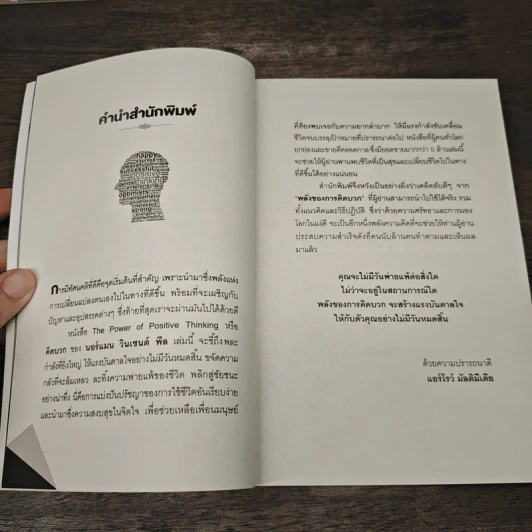 คำนำสำนักพิมพ์
happy
peaceful
successful
positive
thinking
optimistic
strong
การมีทัศนคติที่ดีคือจุดเริ่มต้นที่สำคัญ เพราะนำมาซึ่งพลังแห่ง
การเปลี่ยนแปลงตนเองไปในทางที่ดีขึ้น พร้อมที่จะเผชิญกับ
ปัญหาและอุปสรรคต่างๆ ซึ่งท้ายที่สุดเราจะผ่านมันไปได้ด้วยดี
หนังสือ The Power of Positive Thinking หรือ
คิดบวก ของ นอร์แมน วินเซนต์ พีล เล่มนี้ จะชี้ถึงพละ
กำลังที่ยิ่งใหญ่ ให้แรงบันดาลใจอย่างไม่มีวันหมดสิ้น ขจัดความ
กลัวที่จะล้มเหลว ละทิ้งความพ่ายแพ้ของชีวิต พลิกสู่ชัยชนะ
อย่างน่าทึ่ง นี่คือการแบ่งปันปรัชญาของการใช้ชีวิตอันเรียบง่าย
และนำมาซึ่งความสงบสุขในจิตใจ เพื่อช่วยเหลือเพื่อนมนุษย์
ที่ต้องพบเจอกับความยากลำบาก ให้มีแรงกำลังขับเคลื่อน
ชีวิตจนบรรลุเป้าหมายที่ปรารถนาต่อไป หนังสือที่ผู้คนทั่วโลก
ยกย่องและขายดีตลอดกาล ซึ่งมียอดขายมากกว่า 5 ล้านเล่มนี้
จะช่วยให้ผู้อ่านพานพบชีวิตที่เป็นสุขและเปลี่ยนชีวิตไปในทาง
ที่ดีขึ้นได้อย่างแน่นอน
สำนักพิมพ์จึงหวังเป็นอย่างยิ่งว่าเคล็ดลับดีๆ จาก
"พลังของการคิดบวก" ที่ผู้อ่านสามารถนำไปใช้ได้จริง รวม
ทั้งแนวคิดและวิธีปฏิบัติ ซึ่งว่าด้วยความศรัทธาและการมอง
โลกในแง่ดี จะเป็นอีกหนึ่งพลังความคิดที่จะช่วยให้ท่านผู้อ่าน
ประสบความสำเร็จดังที่คนนับล้านคนทำตามและเห็นผล
มาแล้ว
คุณจะไม่มีวันพ่ายแพ้ต่อสิ่งใด
ไม่ว่าจะอยู่ในสถานการณ์ใด
พลังของการคิดบวก จะสร้างแรงบันดาลใจ
ให้กับตัวคุณอย่างไม่มีวันหมดสิ้น
ด้วยความปรารถนาดี
แอร์โรว์ มัลติมีเดีย